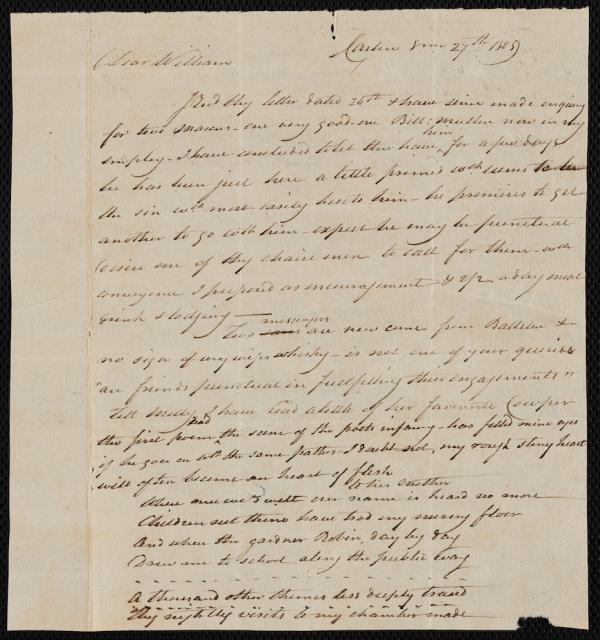 Dear William
27th 1805
Rec'd thy letter dated 26th & have since made enquiry
for two masons - one very good - one Bill: Mullin now in my
employ - I have concluded to let thee have him for a few days
he has been just here a little primed wch seems to be
the sin wch most easily besets him - he promises to get
another to go with him - expect he may be punctual
Desire one of thy chaise men to call for them - with
conveyance I proposed as encouragement 2/2 a day meat
drink & lodging -
Two messengers are now come from Ballitore &
no sign of my wifes whisky - is not one of your queries
"are friends punctual in fulfilling their engagements"
Tell Molly I have read a little of her favourite Cowper
the first poem the scene of the poets infancy - has filled mine eyes
if he goes on with the same pathos - I doubt not, my rough stony heart
will often become an heart of flesh
to his mother
Where once we dwelt our name is heard no more
Children not thine have trod my nursery floor
And where the gardner Robin, day by day
Drew me to school along the public way
A thousand other themes less deeply traced
Thy nightly visits to my chamber made